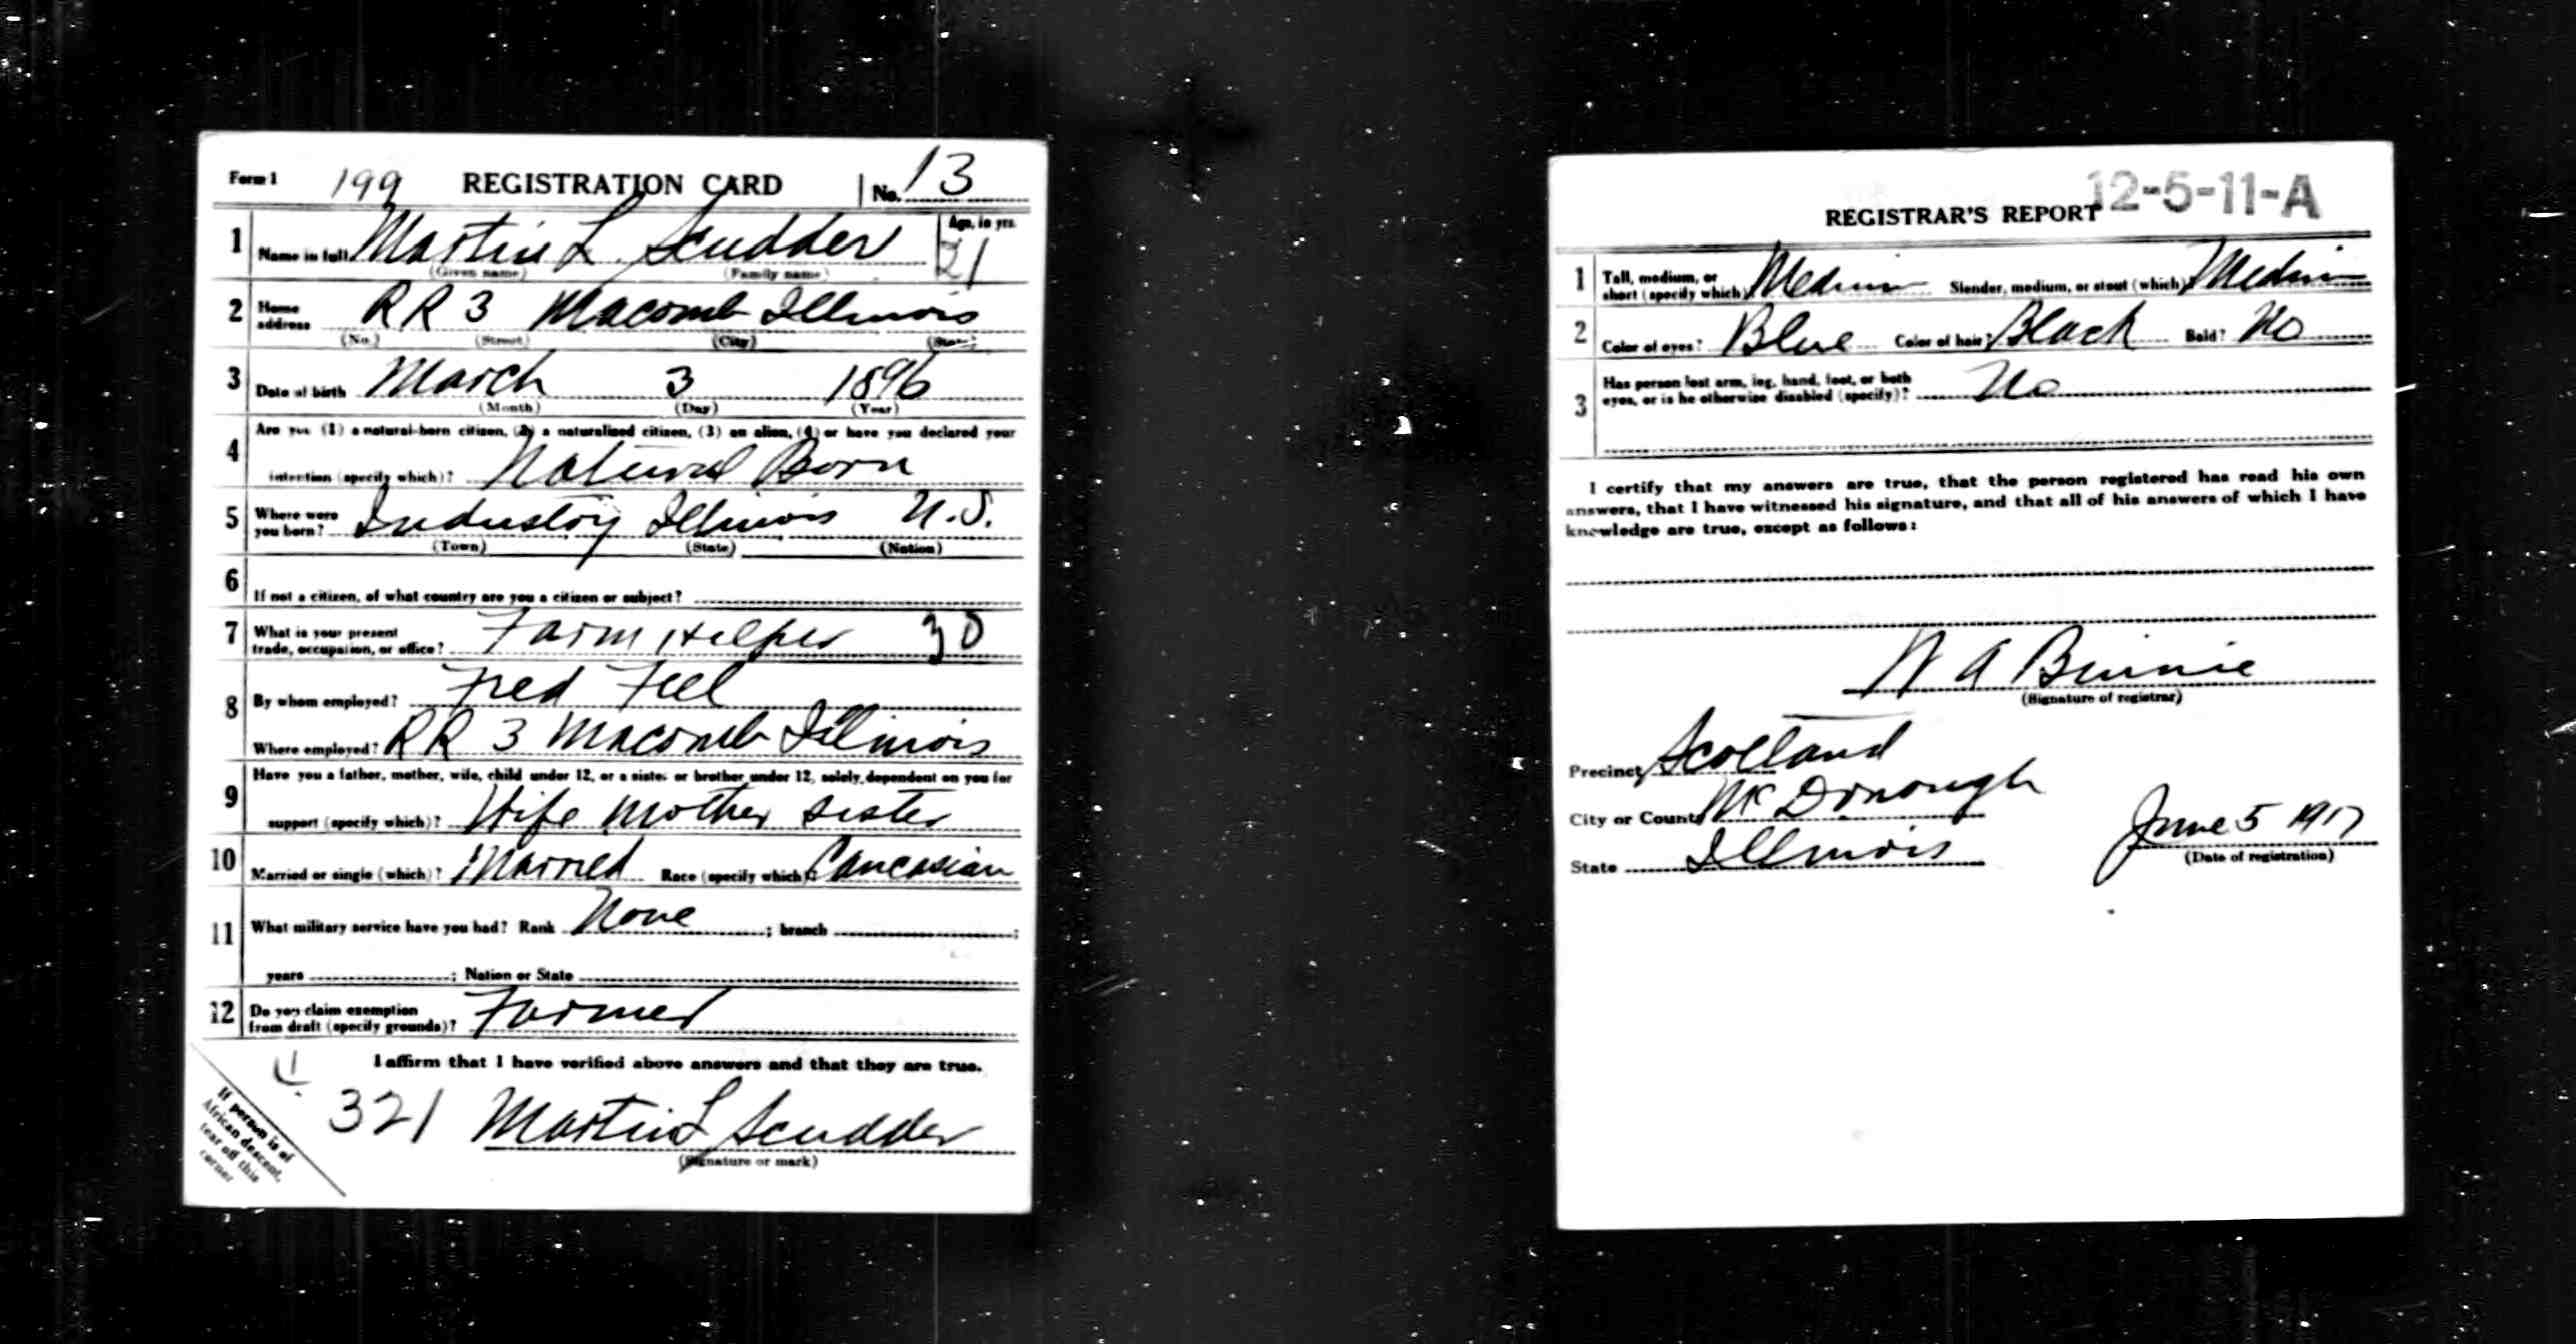 Form 1 199 REGISTRATION CARD No. 13
1 Name in full Martin L Scudder Age, in yrs. 21
(Given name) (Family name)
2 Home address RR 3 Macomb Illinois
(No.) (Street) (City) (State)
3 Date of birth March 3 1896
(Month) (Day) (Year)
4 Are you (1) a natural-born citizen, (2) a naturalized citizen, (3) an alien, (4) or have you declared your
intention (specify which)? Natural Born
5 Where were you born? Industry Illinois U.S.
(Town) (State) (Nation)
6 If not a citizen, of what country are you a citizen or subject?
7 What is your present trade, occupation, or office? Farm Helper 30
8 By whom employed? Fred Feel
Where employed? RR 3 Macomb Illinois
9 Have you a father, mother, wife, child under 12, or a sister or brother under 12, solely dependent on you for
support (specify which)? Wife Mother Sister
10 Married or single (which)? Married Race (specify which)? Caucasian
11 What military service have you had? Rank None ; branch ;
years ; Nation or State
12 Do you claim exemption from draft (specify grounds)? Farmer
I affirm that I have verified above answers and that they are true.
321 Martin L Scudder
(Signature or mark)
If person is of
African descent,
tear off this
corner
12-5-11-A
REGISTRAR'S REPORT
1 Tall, medium, or short (specify which)? Medium Slender, medium, or stout (which)? Medium
2 Color of eyes? Blue Color of hair? Black Bald? No
3 Has person lost arm, leg, hand, foot, or both eyes, or is he otherwise disabled (specify)? No
I certify that my answers are true, that the person registered has read his own
answers, that I have witnessed his signature, and that all of his answers of which I have
knowledge are true, except as follows:
W A Binnie
(Signature of registrar)
Precinct Scotland
City or County McDonough
State Illinois
June 5 1917
(Date of registration)